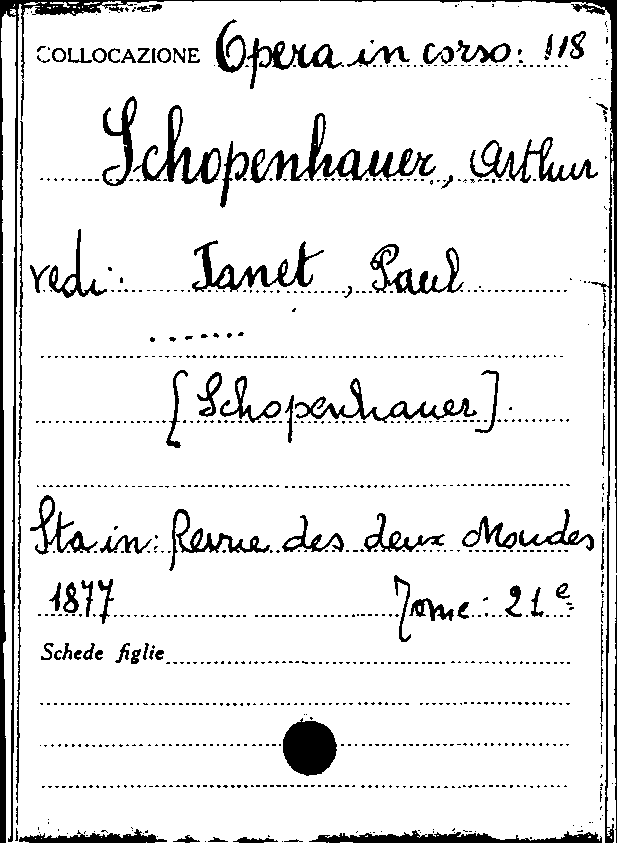 COLLOCAZIONE Opera in corso: 118
Schopenhauer, Arthur
vedi: Janet, Paul
.......
[Schopenhauer].
Sta in: Revue des deux Mondes
1877 Tome: 21e
Schede figlie